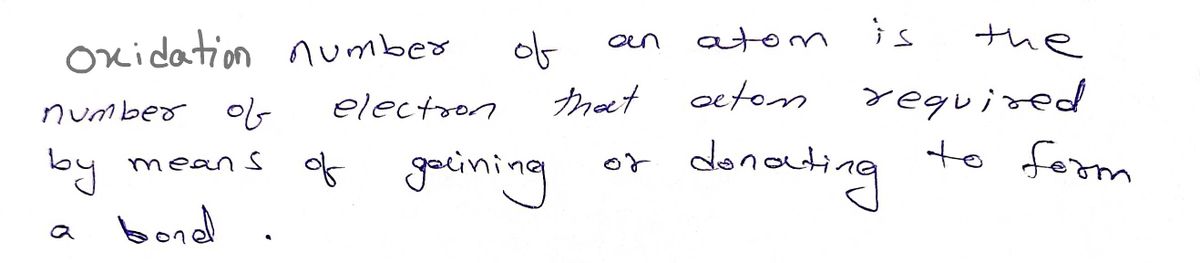 Oxidation number of an atom is the
number of electron that atom required
by means of gaining or donating to form
a bond .